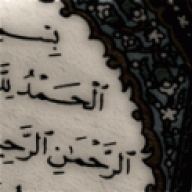 بِسْمِ
ٱلْحَمْدُ لِلَّ
ٱلرَّحْمَٰنِ ٱلرَّحِي